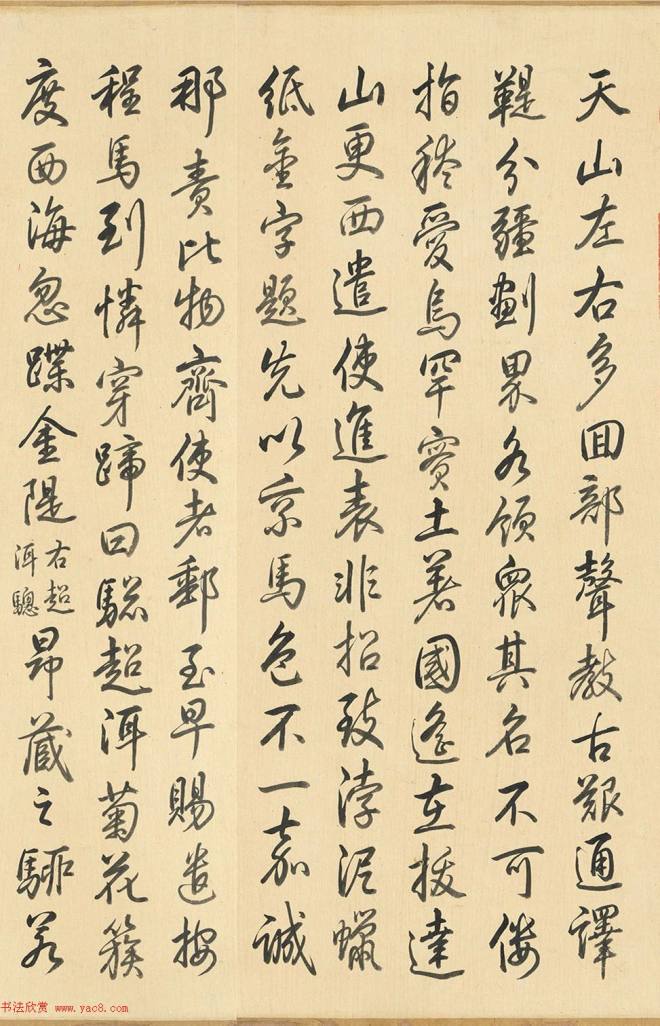 天山左右多囬部聲教古艱通譯
鞮分疆劃界各領衆其名不可僂
指稔愛烏罕實土著國遙在拔達
山更西遣使進表非招致浡泥蠟
紙金字題先以京馬色不一嘉誠
那責比物齊使者郵至早賜遣按
程馬到憐穿蹄曰驄超洱菊花簇
度西海忽蹀金隄
右超
洱驄
昂藏之駆若
书法欣赏 www.yac8.com